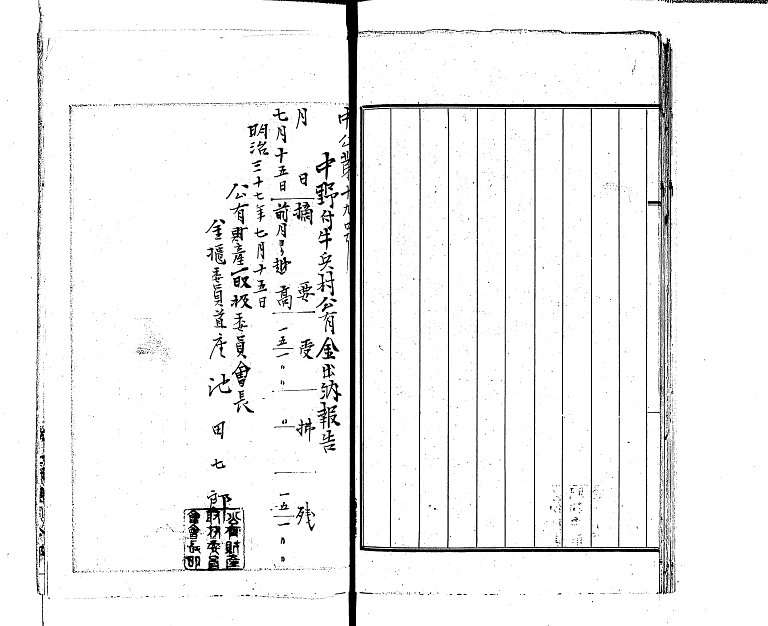 中公第十九号
中野付牛兵村公有金出納報告
月 日 摘 要 受 拂 残
七月十五日 前月ヨリ越高 一五一〃〃 〃 一五一〃〃
明治三十七年七月十五日
公有財産取扱委員會長
金櫃委員首座 池田七郎
公有財産
取扱委員
會會長印